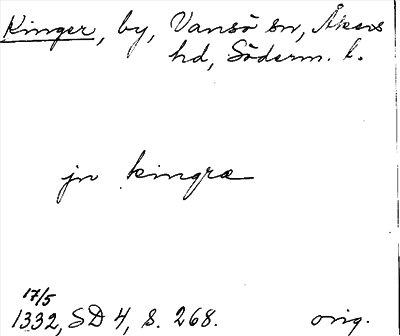 Kinger, by, Vansö sn, Åkers
hd, Söderm. l.
jn kingræ
17/5
1332, SD 4, s. 268. orig.